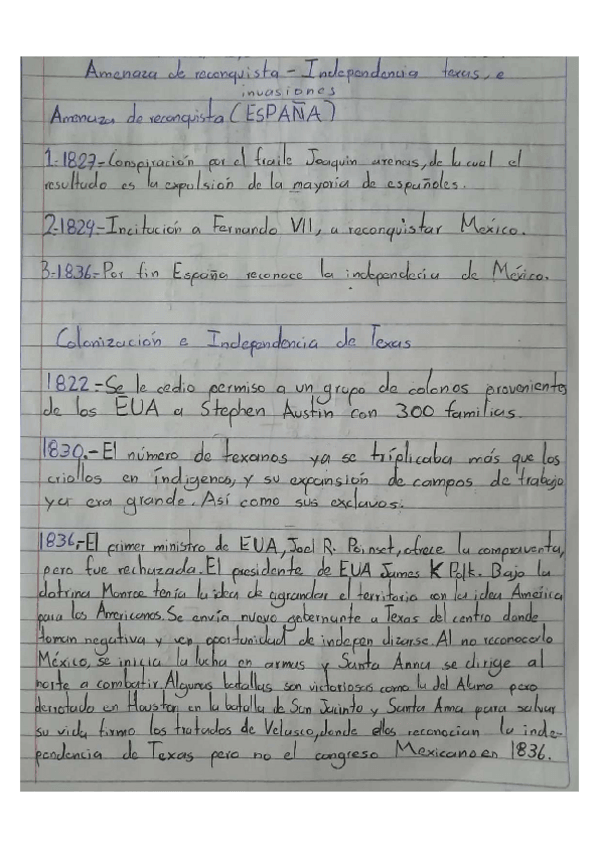 Amenaza de reconquista - Independencia texas, e
invasiones
Amenaza de reconquista (ESPAÑA)
1.-1827-Conspiración por el fraile Joaquin arenas, de la cual el
resultado es la expulsión de la mayoria de españoles.
2.-1829-Incitución a Fernando VII, a reconquistar México.
3.-1836-Por fin España reconoce la independecia de México.
Colonización e Independencia de Texas
1822.-Se le cedio permiso a un grupo de colonos provenientes
de los EUA a Stephen Austin con 300 familias.
1830.-El número de texanos ya se triplicaba más que los
criollos en índigenas, y su expansión de campos de trabajo
ya era grande. Así como sus esclavos.
1836.-El primer ministro de EUA, Joel R. Poinset, ofrece la compraventa,
pero fue rechazada. El presidente de EUA James K Polk. Bajo la
dotrina Monroe tenía la idea de agrandar el territorio con la idea América
para los Americanos. Se envía nuevo gobernante a Texas del centro donde
toman negativa y ven oportunidad de indepen dizarse. Al no reconocerlo
México, se inicia la lucha en armas y Santa Anna se dirige al
norte a combatir. Algunas batallas son victoriosas como la del Alamo pero
derrotado en Houston en la batalla de San Jacinto y Santa Anna para salvar
su vida firmo los tratados de Velasco, donde ellos reconocian la inde-
pendencia de Texas pero no el congreso Mexicano en 1836.